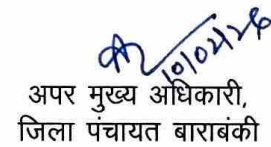 10/02/26
अपर मुख्य अधिकारी,
जिला पंचायत बाराबंकी